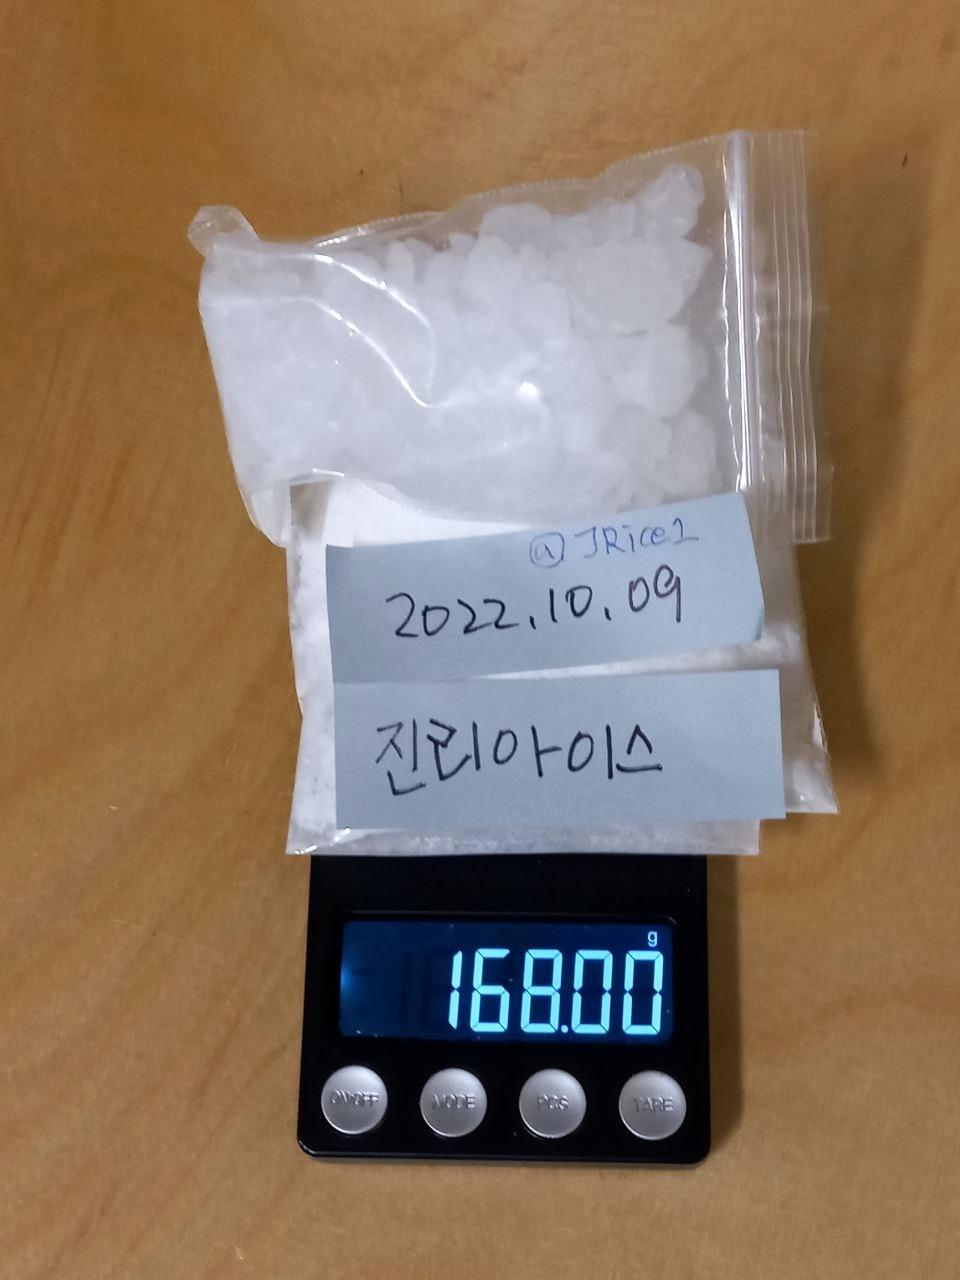 @JRice1
2022.10.09
진리아이스
g
168.00
ON/OFF
MODE
PCS
TARE